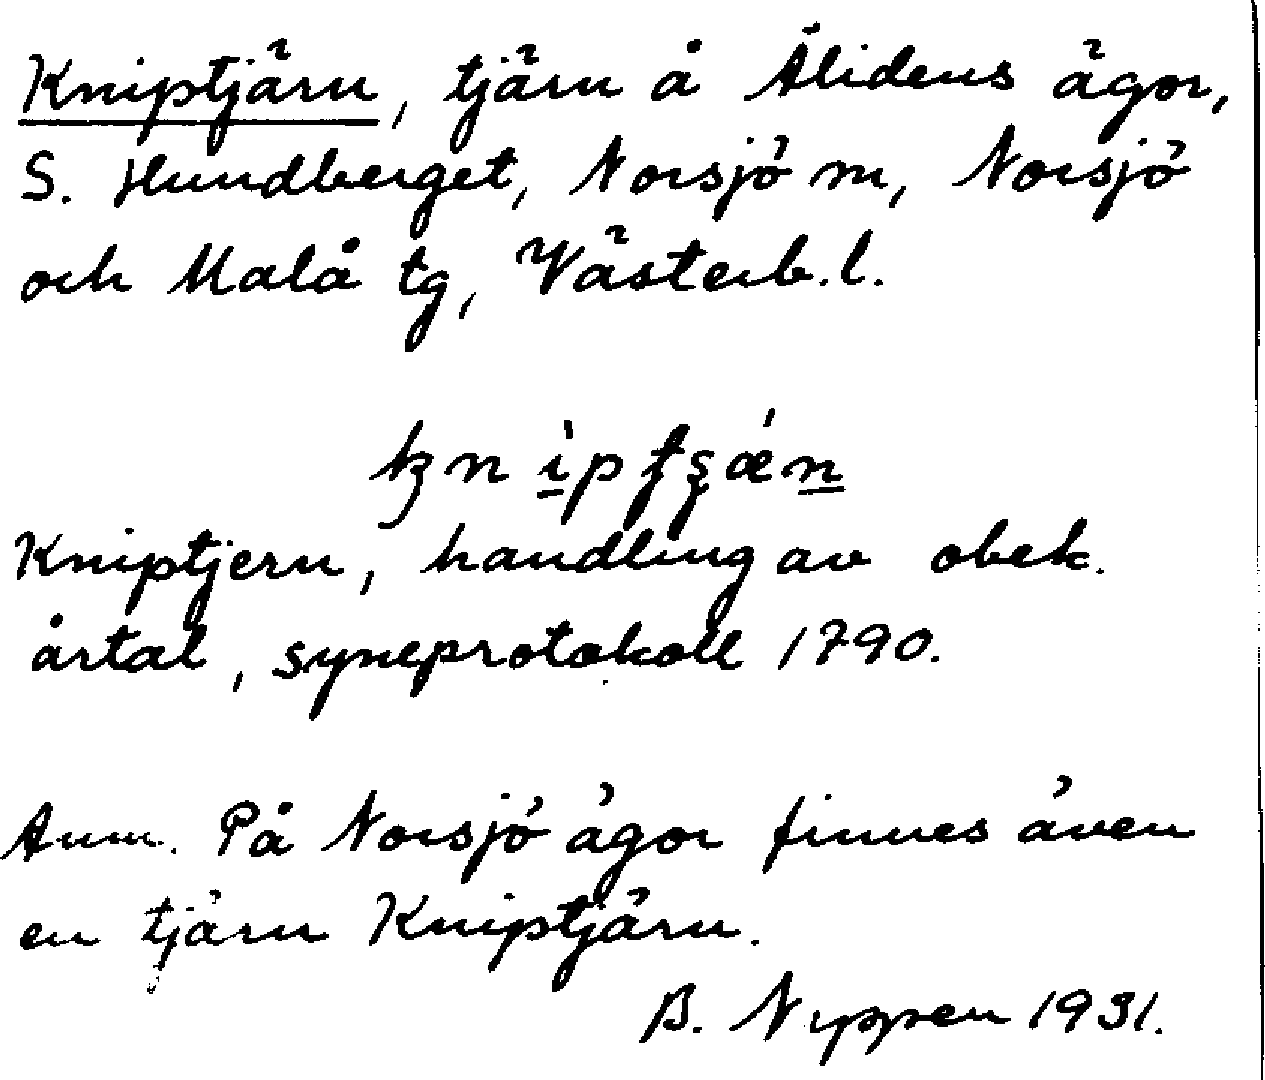 Kniptjärn, tjärn å Ålidens ägor,
S. Hundberget, Norsjö sn, Norsjö
och Malå tg, Västerb. l.
Kniptjern, handling av obek.
årtal, syneprotokoll 1790.
Anm. På Norsjö ägor finnes även
en tjärn Kniptjärn.
B. Nyppen 1931.